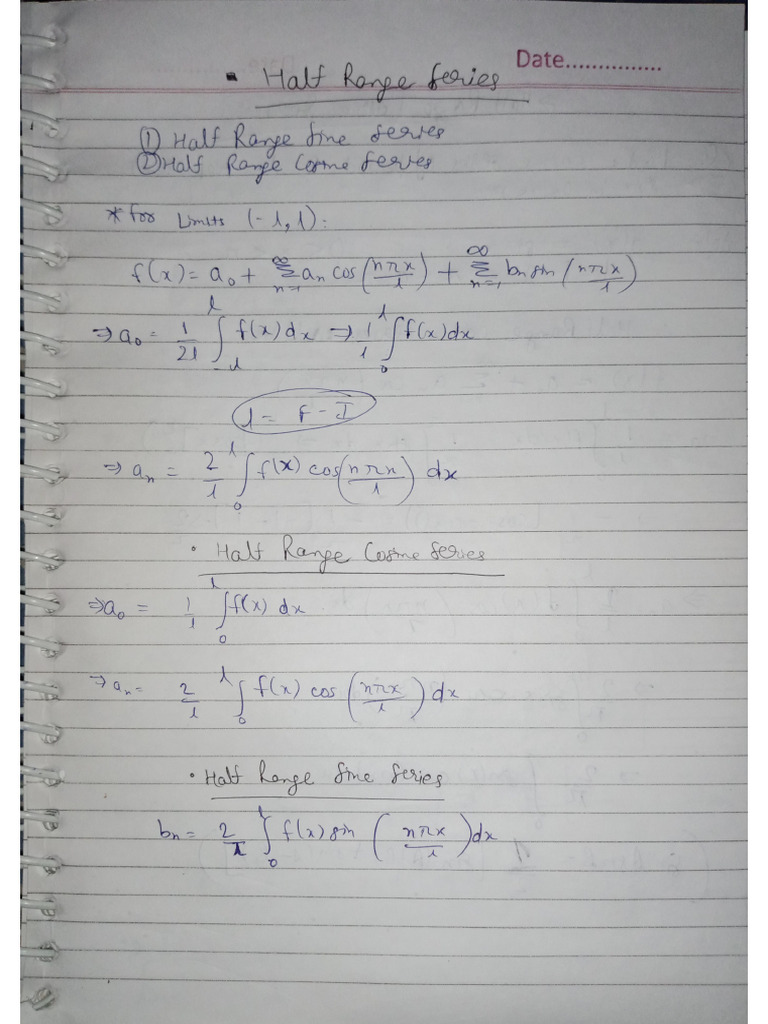 Date...............
• Half Range Series
① Half Range Sine Series
② Half Range Cosine Series
* for Limits (-l, l):
f(x) = a₀ + ∞Σn=1 aₙ cos(nπx/l) + ∞Σn=1 bₙ sin(nπx/l)
⇒ a₀ = 1/2l ∫₋ₗˡ f(x) dx ⇒ 1/l ∫₀ˡ f(x) dx
l = F - I
⇒ aₙ = 2/l ∫₀ˡ f(x) cos(nπx/l) dx
• Half Range Cosine Series
⇒ a₀ = 1/l ∫₀ˡ f(x) dx
⇒ aₙ = 2/l ∫₀ˡ f(x) cos(nπx/l) dx
• Half Range Sine Series
bₙ = 2/l ∫₀ˡ f(x) sin(nπx/l) dx